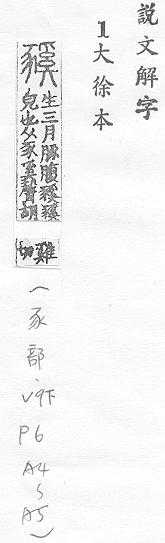 説文解字
1大徐本
豯
生三月豚腹豯豯
皃也从豕奚聲胡
雞
切
(豕部.
V9下
P6
A4
~
A5)